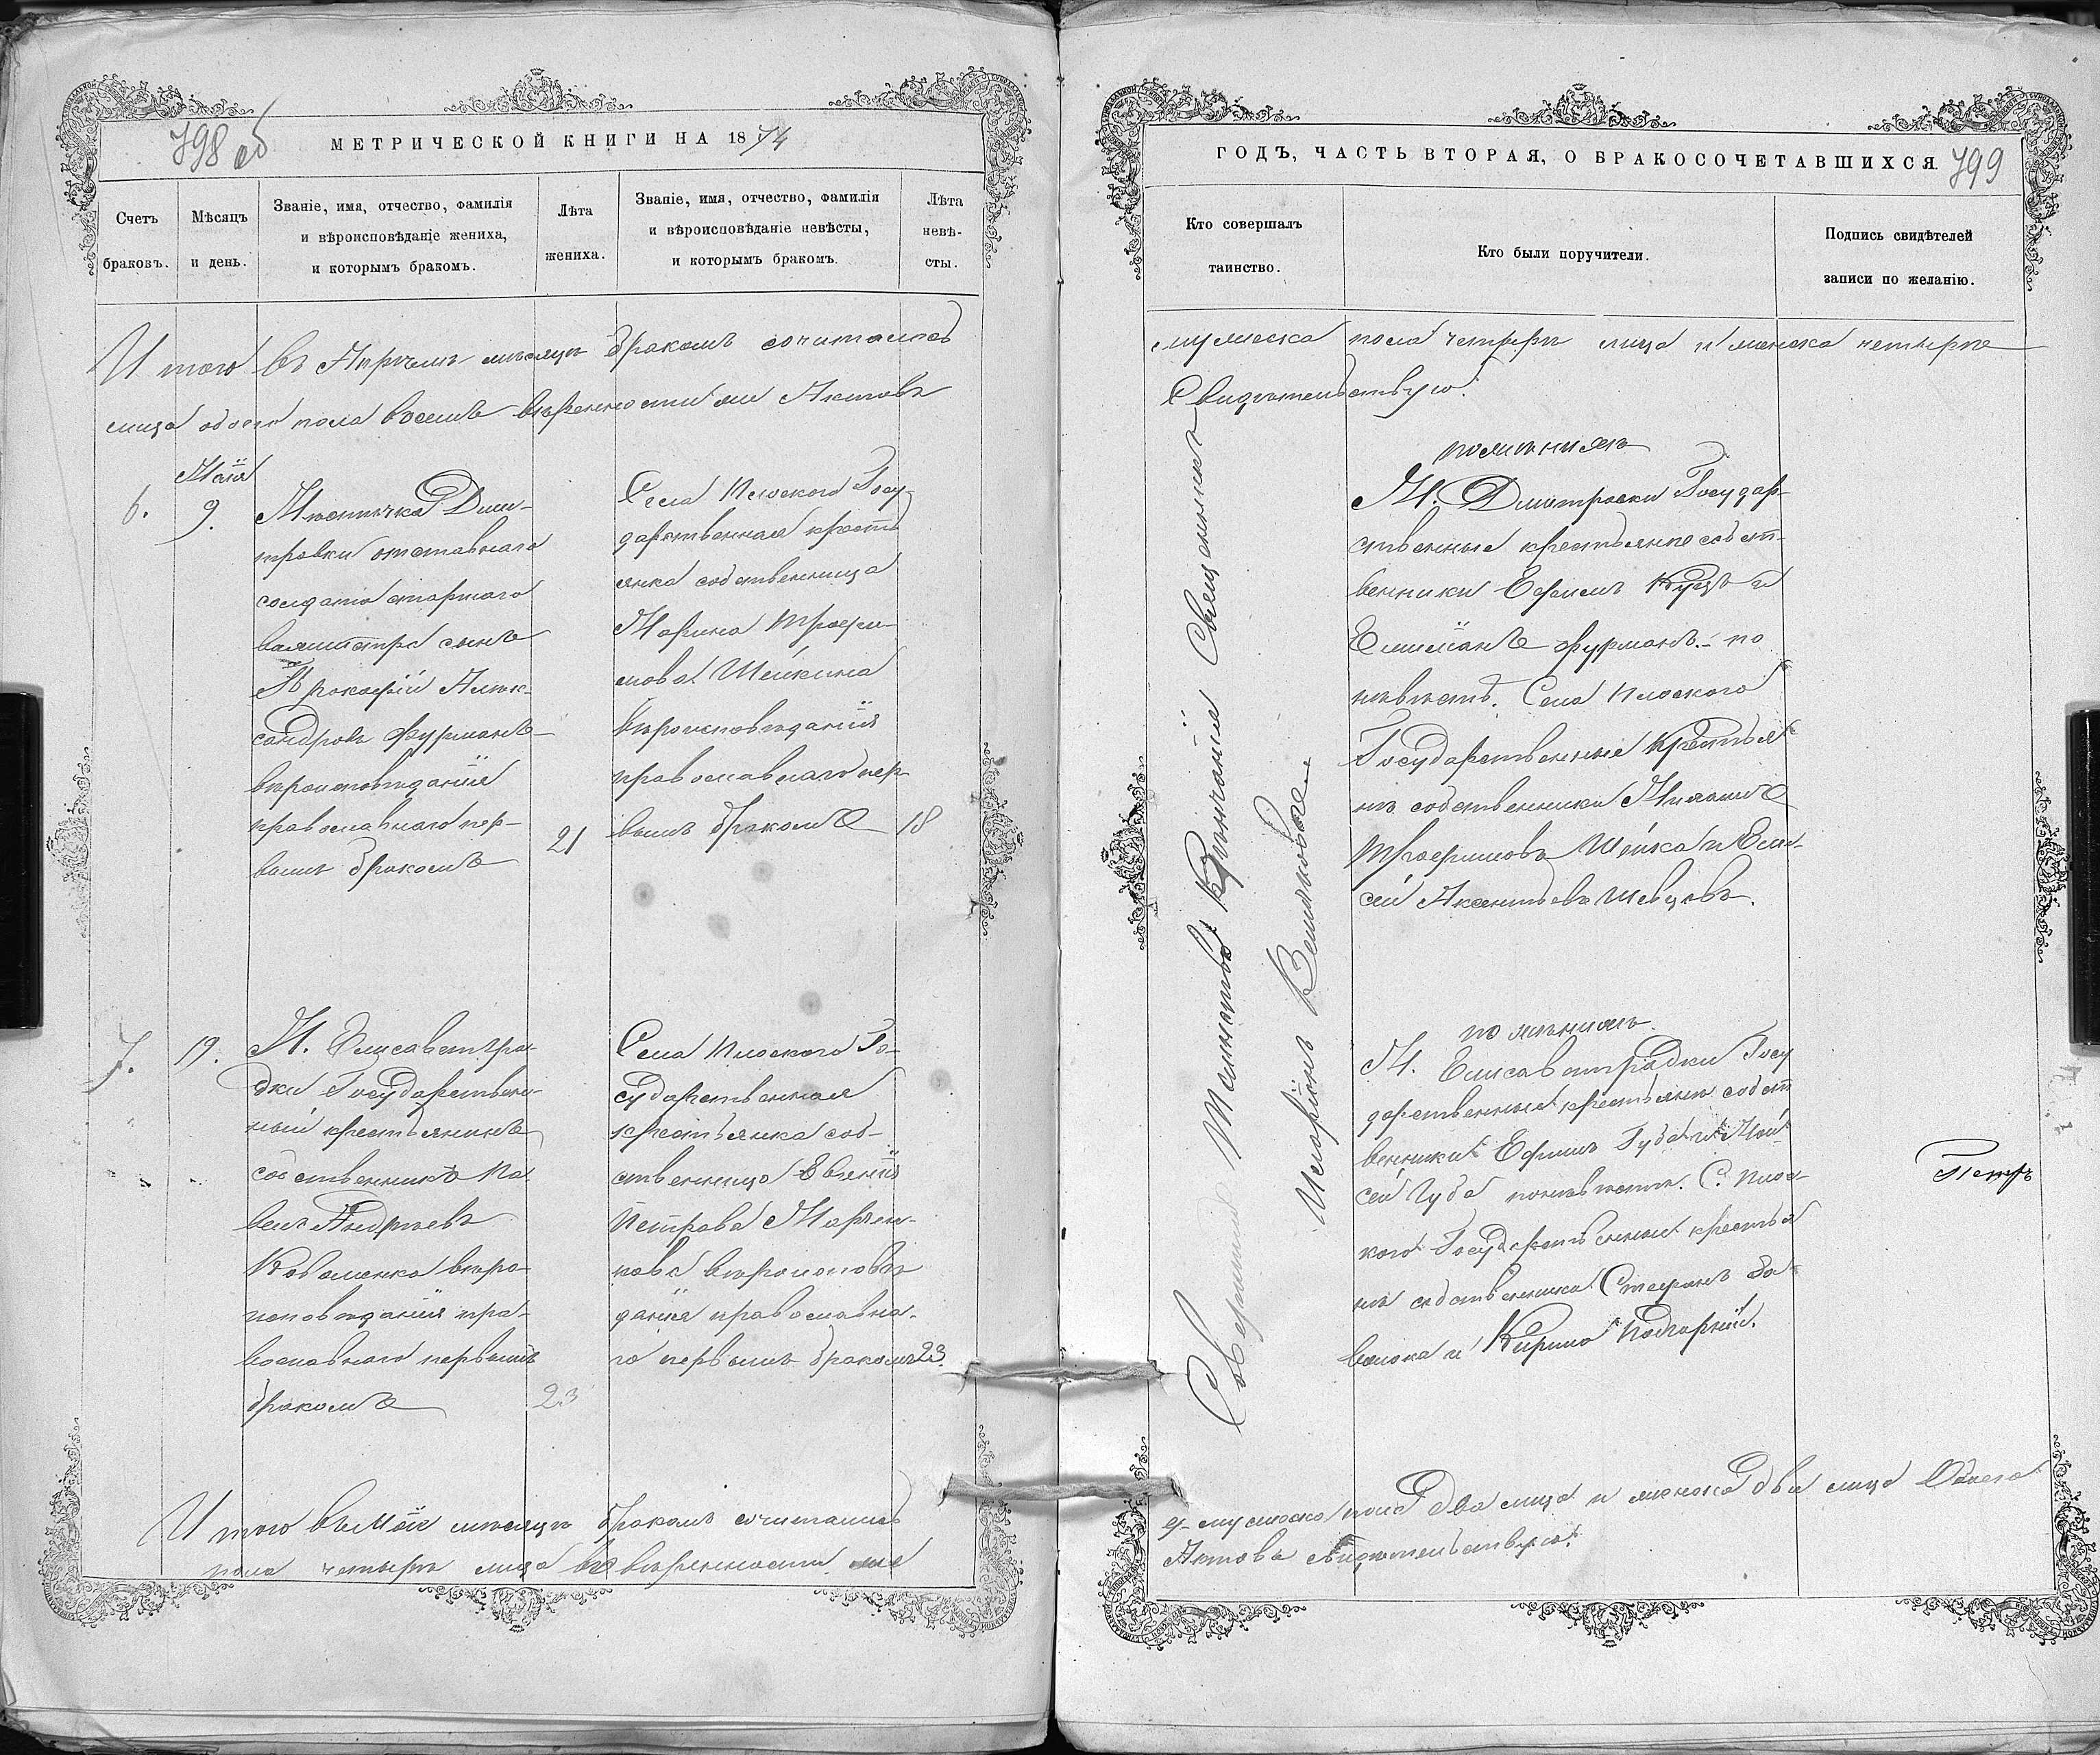 798 об
МЕТРИЧЕСКОЙ КНИГИ НА 1874
Счетъ браковъ.
Мѣсяцъ и день.
Званіе, имя, отчество, фамилія
и вѣроисповѣданіе жениха,
и которымъ бракомъ.
Лѣта жениха.
Званіе, имя, отчество, фамилія
и вѣроисповѣданіе невѣсты,
и которымъ бракомъ.
Лѣта невѣ-
сты.
Итого въ Апрѣлѣ мѣсяцѣ бракомъ сочитались
лица обоего пола восемъ вѣрности Актовъ
6.
Маія
9.
Мѣстечка Дми-
тровки отставнаго
солдата старшаго
сынъ
Прокофій Алек-
сандровъ Фурманъ
вѣроисповѣданія
православнаго пер-
вымъ бракомъ
21
Села Плоского Госу-
дарственная крестъ
янка собственница
Марина Трофи-
мова Шейкина
вѣроисповѣданія
православнаго пер
вымъ бракомъ
18
7.
19.
М. Елисаветгра-
дки Государствен-
ный крестьянинъ
собственникъ Па
велъ Андреевъ
Коваленко вѣро-
исповѣданія пра-
вославнаго первымъ
бракомъ
23
Села Плоского Го-
сударственная
крестьянка соб-
ственница Евгенія
Петрова Марчен-
кова вѣроисповѣ
данія православна-
го первымъ бракомъ
23.
Итого въ Маіе мѣсяцѣ бракомъ сочитались
пола четыре лица въ вѣрности
799
ГОДЪ, ЧАСТЬ ВТОРАЯ, О БРАКОСОЧЕТАВШИХСЯ.
Кто совершалъ
таинство.
Кто были поручители.
Подпись свидѣтелей
записи по желанію.
мужеска пола четыре лица и женска четыре
Свидѣтельствую:
Совершилъ Таинство Вѣнчаніе Священникъ
Иларіонъ
по женихѣ
М. Дмитровки Государ-
ственные крестьяне собст-
венники Ефимъ Куцъ и
Емиліанъ Фурманъ.- по
невѣстѣ. Села Плоского
Государственные крестья
нѣ собственники
Трофимовъ Шейка и Ели-
сей Аксентьевъ Шевцовъ.
по женихѣ
М. Елисаветградки Госу
дарственные крестьяне собст
венники Ефимъ Губа и Мои
сей Губа по невѣстѣ. С. Плос-
кого Государственные крестья
нѣ собственники Стефанъ
и Кирило Подгорній.
Петръ
мужеска пола два лица и женска два лица Обоего
Актовъ свидѣтельствую: